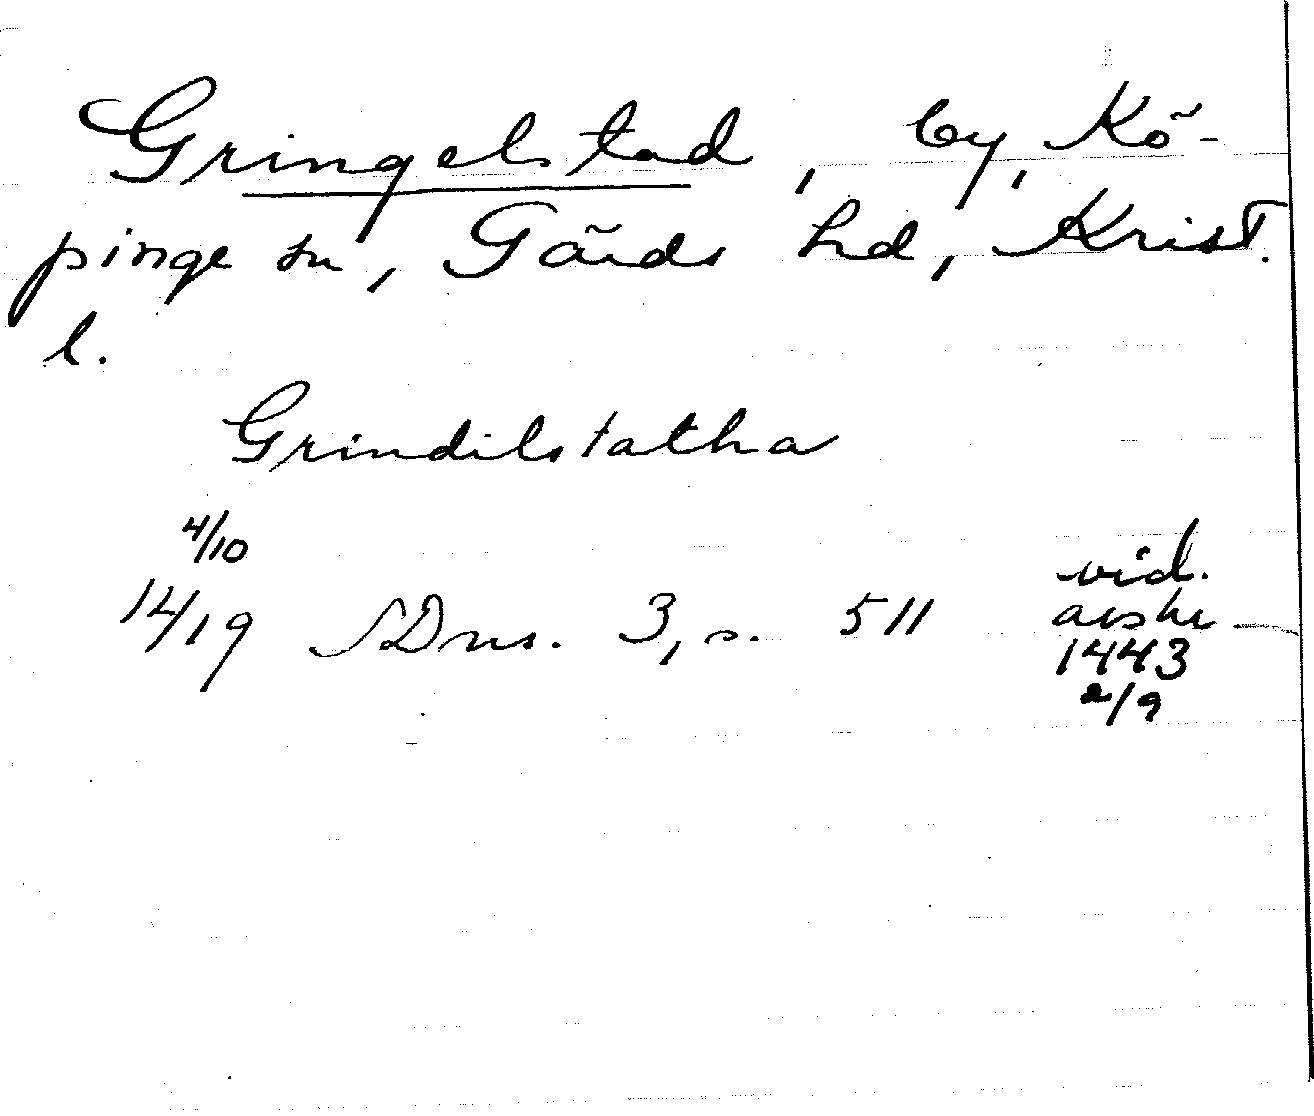 Gringelstad, by, Kö-
pinge sn, Gärds hd, Krist.
l.
Grindilstatha
4/10
1419 SDns. 3, s. 511 vid.
avskr
1443
2/9